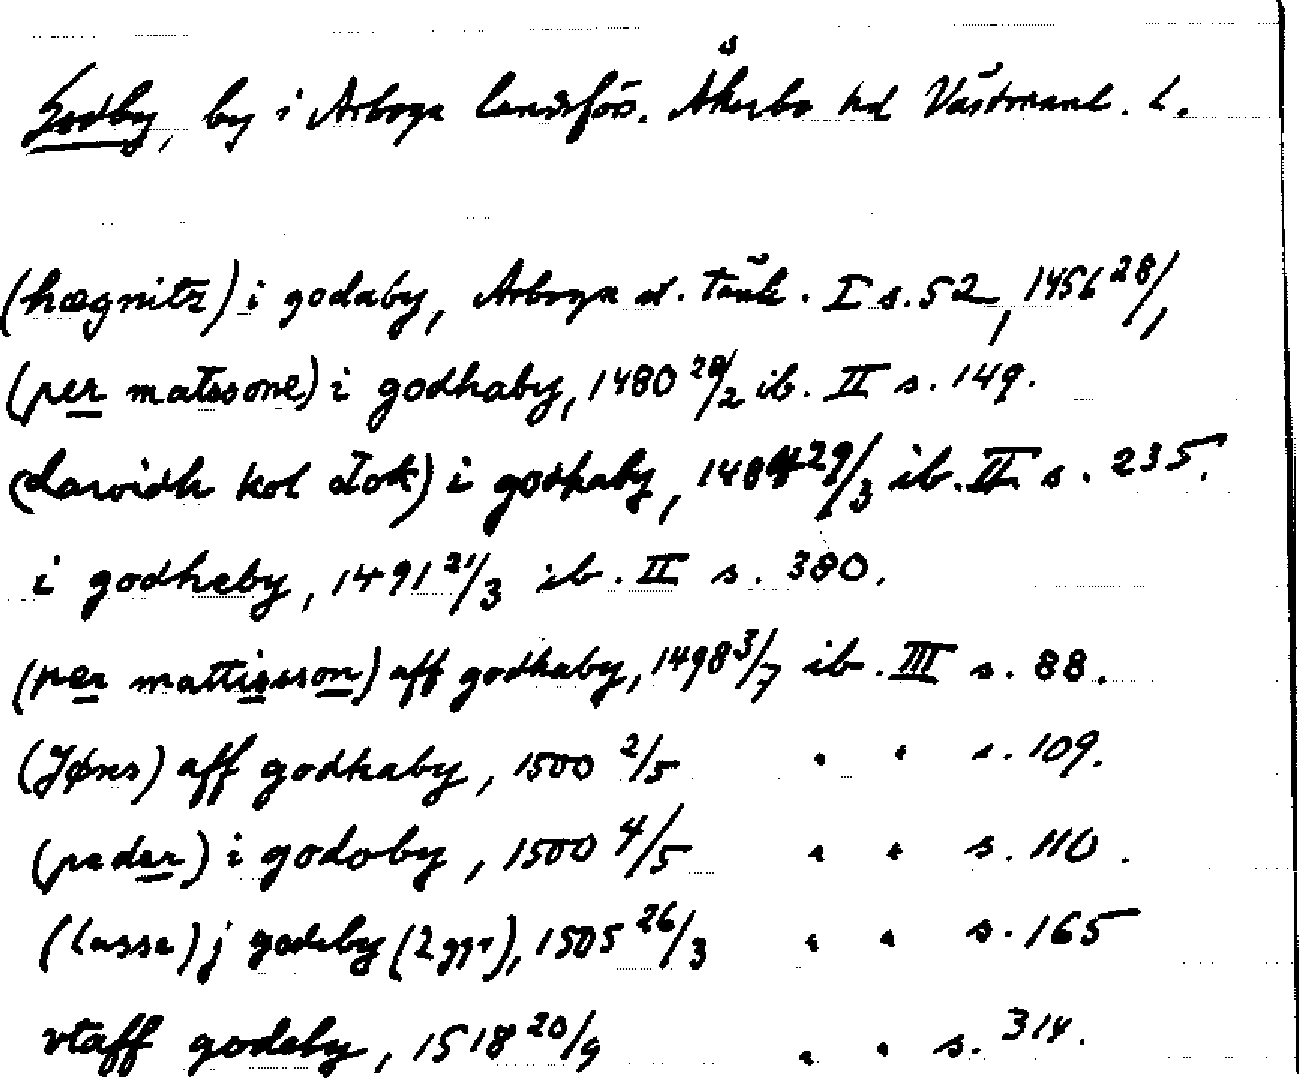 Godby, by i Arboga landsförs. Åkerbo hd Västmanl. l.
(hægnitz) i godaby, Arboga st. Tänk. I s. 52, 1456 28/1
(per matssone) i godhaby, 1480 28/2 ib. II s. 149.
(dawidh kol) i godhaby, 1484 29/3 ib. II s. 235.
i godheby, 1491 21/3 ib. II s. 380.
(per mattisson) aff godhaby, 1498 3/7 ib. III s. 88.
(Jøns) aff godhaby, 1500 2/5 " " s. 109.
(peder) i godoby, 1500 4/5 " " s. 110.
(lasse) j godeby (2 ggr), 1505 26/3 " " s. 165
vtaff godeby, 1518 20/9 " " s. 314.